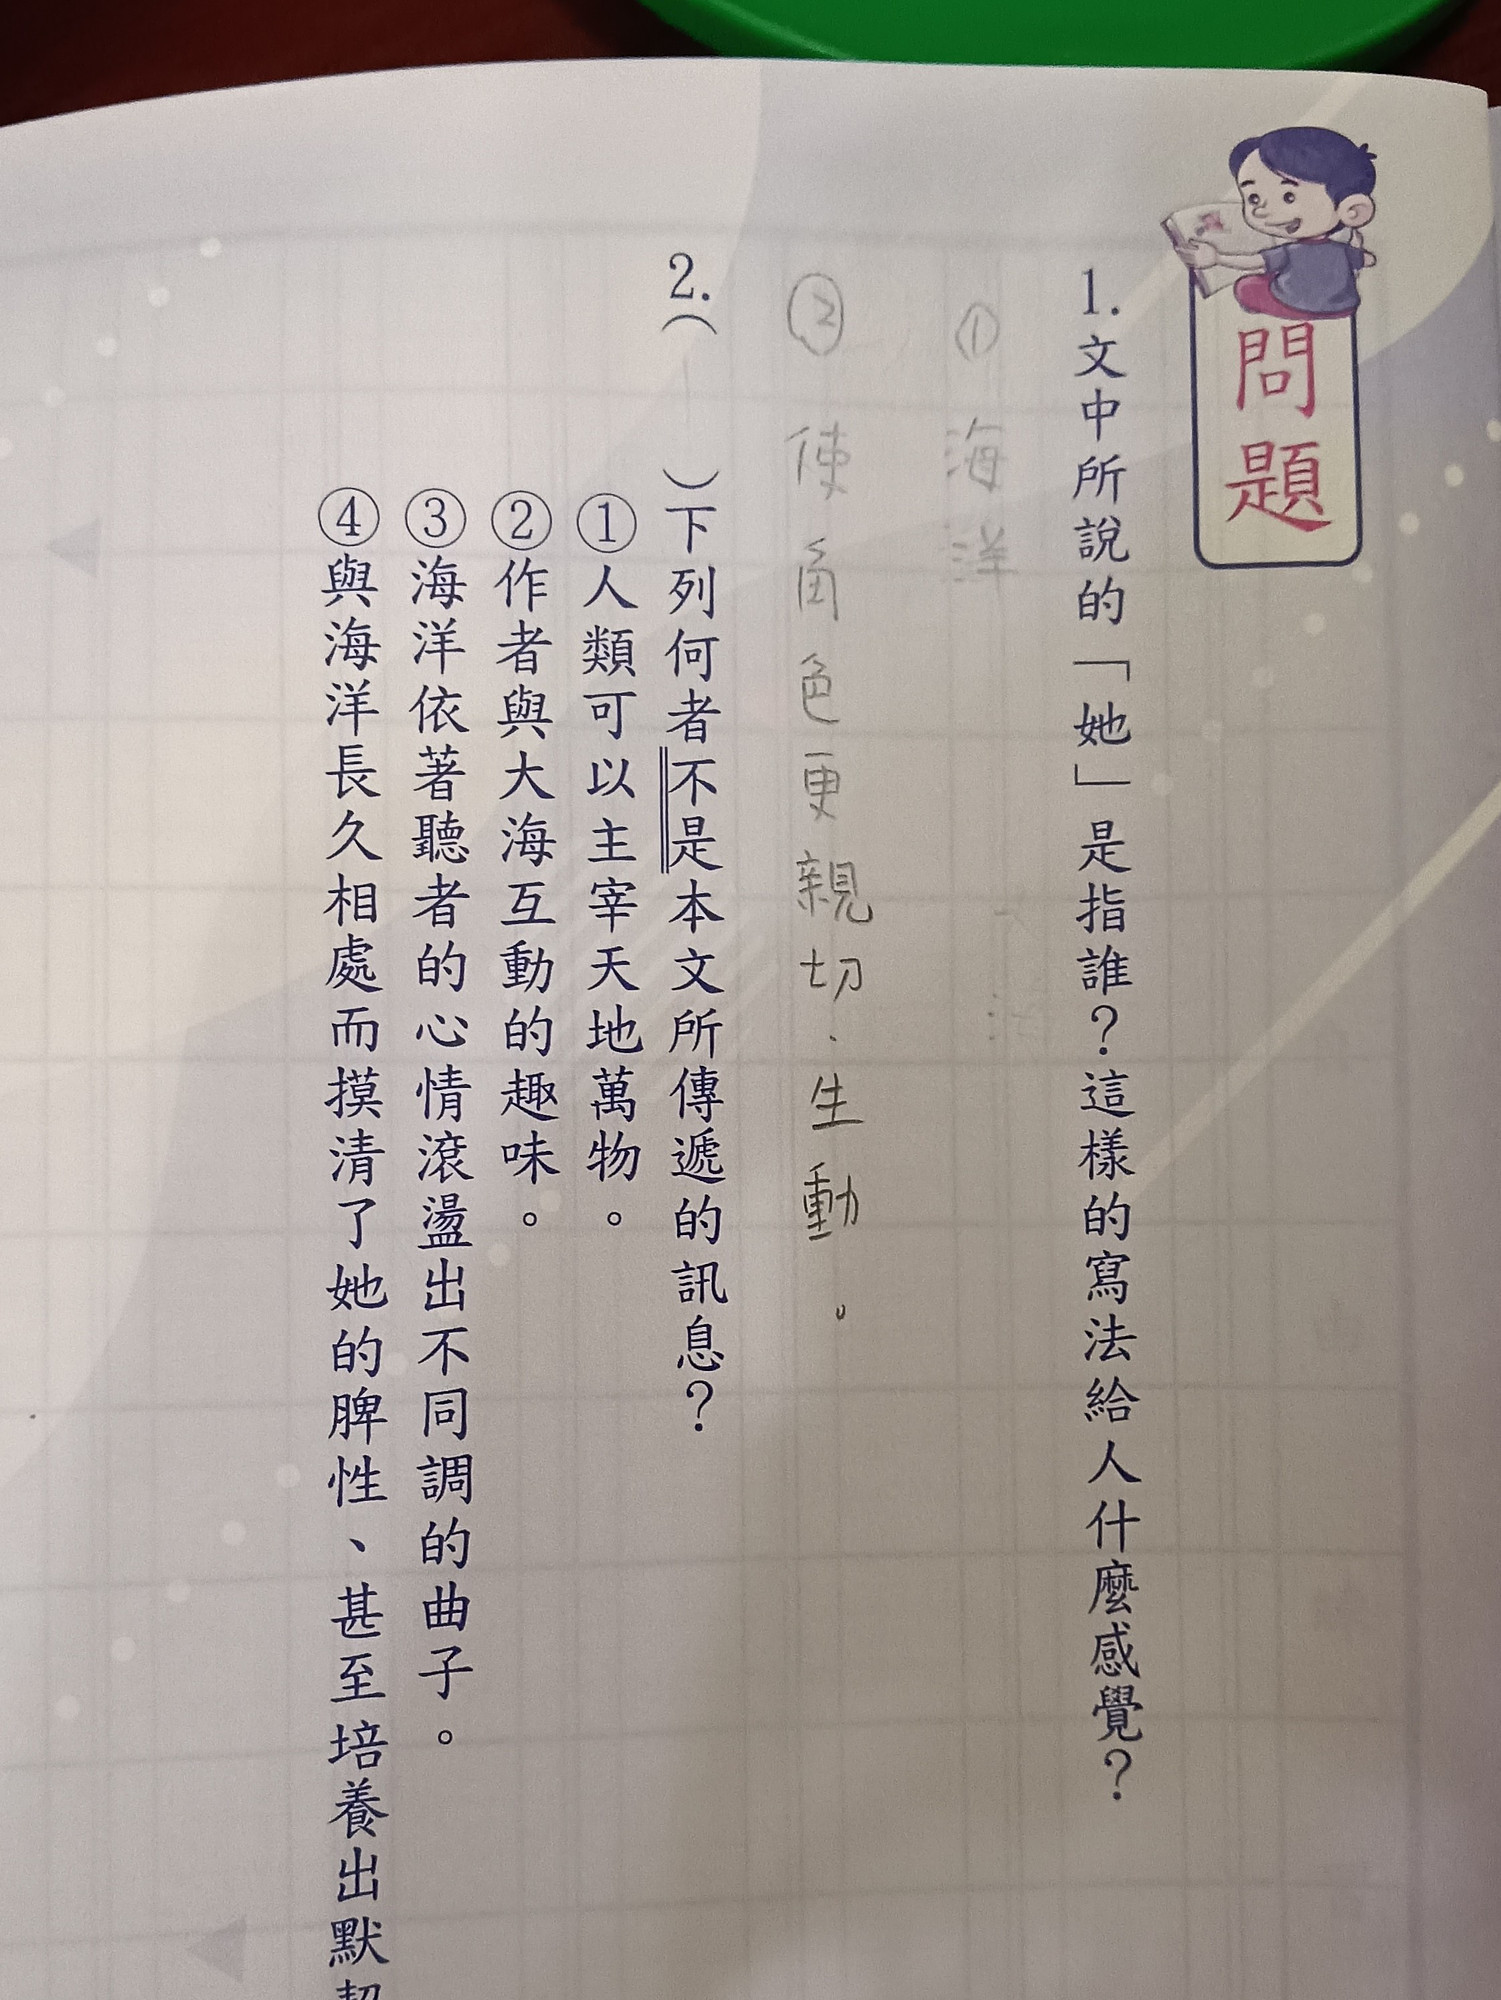 問題
1.文中所說的「她」是指誰？這樣的寫法給人什麼感覺？
① 海洋
② 使角色更親切、生動。
2.（ ）下列何者不是本文所傳遞的訊息？
①人類可以主宰天地萬物。
②作者與大海互動的趣味。
③海洋依著聽者的心情滾盪出不同調的曲子。
④與海洋長久相處而摸清了她的脾性、甚至培養出默契